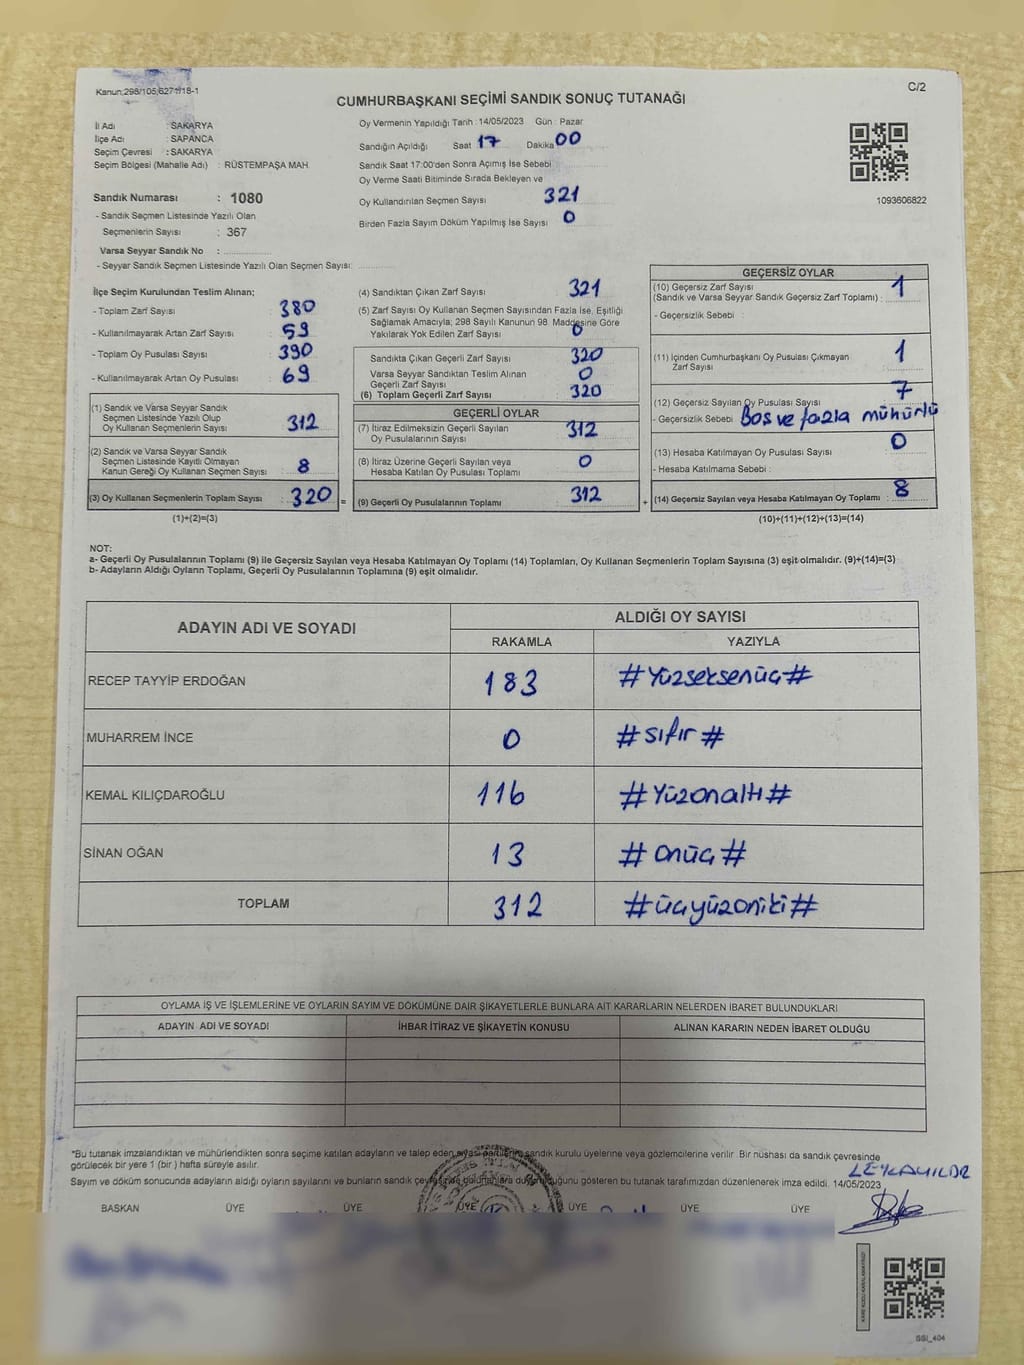 Kanun:298/105;6271/18-1
C/2
CUMHURBAŞKANI SEÇİMİ SANDIK SONUÇ TUTANAĞI
İl Adı : SAKARYA
İlçe Adı : SAPANCA
Seçim Çevresi : SAKARYA
Seçim Bölgesi (Mahalle Adı) : RÜSTEMPAŞA MAH.
Sandık Numarası : 1080
- Sandık Seçmen Listesinde Yazılı Olan
Seçmenlerin Sayısı : 367
Varsa Seyyar Sandık No :
- Seyyar Sandık Seçmen Listesinde Yazılı Olan Seçmen Sayısı:
Oy Vermenin Yapıldığı Tarih : 14/05/2023 Gün : Pazar
Sandığın Açıldığı Saat 17 Dakika 00
Sandık Saat 17:00'den Sonra Açımış İse Sebebi
Oy Verme Saati Bitiminde Sırada Bekleyen ve
Oy Kullandırılan Seçmen Sayısı 321
Birden Fazla Sayım Döküm Yapılmış İse Sayısı 0
1093606822
İlçe Seçim Kurulundan Teslim Alınan;
- Toplam Zarf Sayısı : 380
- Kullanılmayarak Artan Zarf Sayısı : 59
- Toplam Oy Pusulası Sayısı : 390
- Kullanılmayarak Artan Oy Pusulası : 69
(1) Sandık ve Varsa Seyyar Sandık
Seçmen Listesinde Yazılı Olup
Oy Kullanan Seçmenlerin Sayısı : 312
(2) Sandık ve Varsa Seyyar Sandık
Seçmen Listesinde Kayıtlı Olmayan
Kanun Gereği Oy Kullanan Seçmen Sayısı : 8
(3) Oy Kullanan Seçmenlerin Toplam Sayısı : 320 =
(1)+(2)=(3)
(4) Sandıktan Çıkan Zarf Sayısı : 321
(5) Zarf Sayısı Oy Kullanan Seçmen Sayısından Fazla İse, Eşitliği
Sağlamak Amacıyla; 298 Sayılı Kanunun 98. Maddesine Göre
Yakılarak Yok Edilen Zarf Sayısı : 0
Sandıkta Çıkan Geçerli Zarf Sayısı : 320
Varsa Seyyar Sandıktan Teslim Alınan
Geçerli Zarf Sayısı : 0
(6) Toplam Geçerli Zarf Sayısı : 320
GEÇERLİ OYLAR
(7) İtiraz Edilmeksizin Geçerli Sayılan
Oy Pusulalarının Sayısı : 312
(8) İtiraz Üzerine Geçerli Sayılan veya
Hesaba Katılan Oy Pusulası Sayısı : 0
(9) Geçerli Oy Pusulalarının Toplamı : 312 +
GEÇERSİZ OYLAR
(10) Geçersiz Zarf Sayısı
(Sandık ve Varsa Seyyar Sandık Geçersiz Zarf Toplamı) : 1
- Geçersizlik Sebebi :
(11) İçinden Cumhurbaşkanı Oy Pusulası Çıkmayan
Zarf Sayısı : 1
(12) Geçersiz Sayılan Oy Pusulası Sayısı : 7
- Geçersizlik Sebebi Boş ve fazla mühürlü
(13) Hesaba Katılmayan Oy Pusulası Sayısı : 0
- Hesaba Katılmama Sebebi :
(14) Geçersiz Sayılan veya Hesaba Katılmayan Oy Toplamı : 8
(10)+(11)+(12)+(13)=(14)
NOT:
a- Geçerli Oy Pusulalarının Toplamı (9) ile Geçersiz Sayılan veya Hesaba Katılmayan Oy Toplamı (14) Toplamları, Oy Kullanan Seçmenlerin Toplam Sayısına (3) eşit olmalıdır. (9)+(14)=(3)
b- Adayların Aldığı Oyların Toplamı, Geçerli Oy Pusulalarının Toplamına (9) eşit olmalıdır.
ADAYIN ADI VE SOYADI ALDIĞI OY SAYISI
RAKAMLA YAZIYLA
RECEP TAYYİP ERDOĞAN 183 #Yüzseksenüç#
MUHARREM İNCE 0 #sıfır#
KEMAL KILIÇDAROĞLU 116 #Yüzonaltı#
SİNAN OĞAN 13 #onüç#
TOPLAM 312 #üçyüzoniki#
OYLAMA İŞ VE İŞLEMLERİNE VE OYLARIN SAYIM VE DÖKÜMÜNE DAİR ŞİKAYETLERLE BUNLARA AİT KARARLARIN NELERDEN İBARET BULUNDUKLARI
ADAYIN ADI VE SOYADI İHBAR İTİRAZ VE ŞİKAYETİN KONUSU ALINAN KARARIN NEDEN İBARET OLDUĞU
*Bu tutanak imzalandıktan ve mühürlendikten sonra seçime katılan adayların ve talep eden siyasi partilerin sandık kurulu üyelerine veya gözlemcilerine verilir. Bir nüshası da sandık çevresinde
görülecek bir yere 1 (bir ) hafta süreyle asılır.
Sayım ve döküm sonucunda adayların aldığı oyların sayılarını ve bunların sandık çevresinde bulunanlara duyurulduğunu gösteren bu tutanak tarafımızdan düzenlenerek imza edildi. 14/05/2023
BAŞKAN ÜYE ÜYE ÜYE ÜYE ÜYE ÜYE
SSI_404